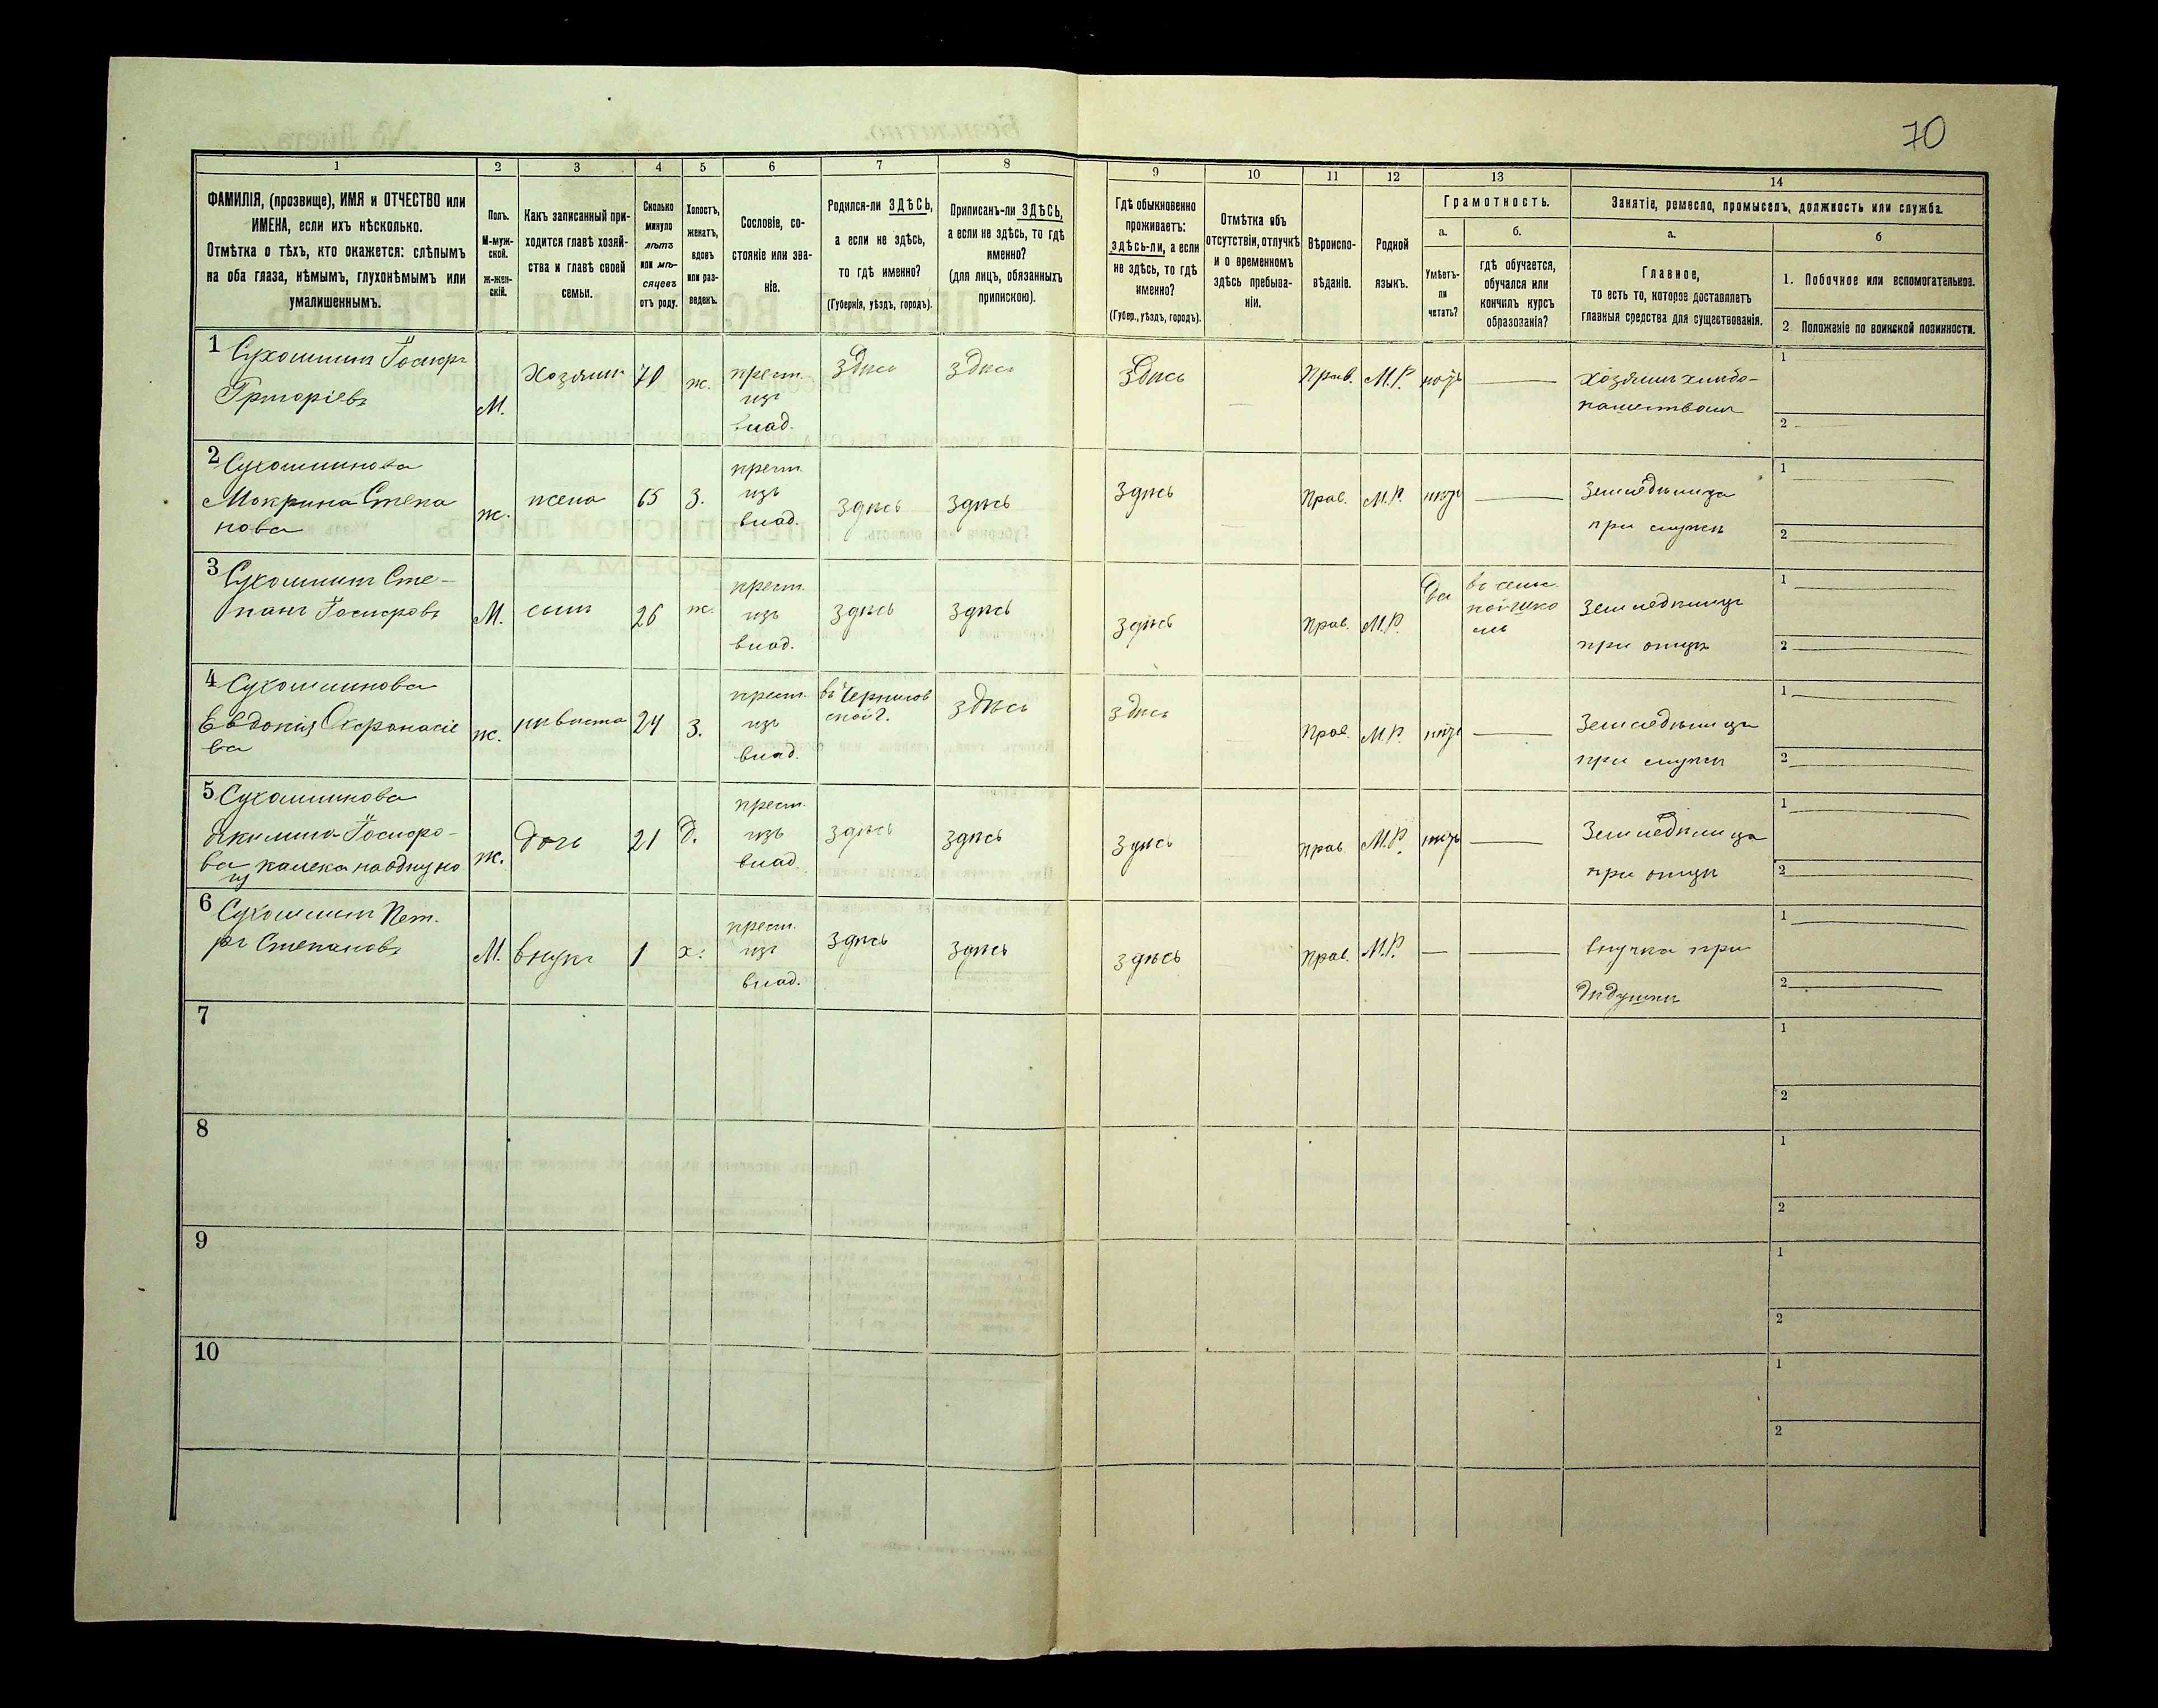 70
1 2 3 4 5 6 7 8 9 10 11 12 13 14
ФАМИЛІЯ, (прозвище), ИМЯ и ОТЧЕСТВО или
ИМЕНА, если ихъ нѣсколько.
Отмѣтка о тѣхъ, кто окажется: слѣпымъ
на оба глаза, нѣмымъ, глухонѣмымъ или
умалишеннымъ.
Полъ.
М-муж-
ской.
ж-жен-
скій.
Какъ записанный при-
ходится главѣ хозяй-
ства и главѣ своей
семьи.
Сколько
минуло
лѣтъ
или мѣ-
сяцевъ
отъ роду.
Холостъ,
женатъ,
вдовъ
или раз-
веденъ.
Сословіе, со-
стояніе или зва-
ніе.
Родился-ли ЗДѢСЬ,
а если не здѣсь,
то гдѣ именно?
(Губернія, уѣздъ, городъ).
Приписанъ-ли ЗДѢСЬ,
а если не здѣсь, то гдѣ
именно?
(для лицъ, обязанныхъ
припискою).
Гдѣ обыкновенно
проживаетъ:
здѣсь-ли, а если
не здѣсь, то гдѣ
именно?
(Губер., уѣздъ, городъ).
Отмѣтка объ
отсутствіи, отлучкѣ
и о временномъ
здѣсь пребыва-
ніи.
Вѣроиспо-
вѣданіе.
Родной
языкъ.
Грамотность.
а.
Умѣетъ-
ли
читать?
б.
гдѣ обучается,
обучался или
кончилъ курсъ
образованія?
Занятіе, ремесло, промыселъ, должность или служба.
а.
Главное,
то есть то, которое доставляетъ
главныя средства для существованія.
б
1. Побочное или вспомогательное.
2 Положеніе по воинской повинности.
1 Сухошинъ Іосифъ
Григоріевъ
М.
Хозяинъ
70
ж.
крест.
изъ
влад.
здѣсь
здѣсь
Здѣсь
Прав.
М.Р.
нѣтъ
хозяинъ хлѣбо-
пашествомъ
1
2
2 Сухошинова
Мокрина Степа
нова
ж.
жена
65
З.
крест.
изъ
влад.
здѣсь
здѣсь
здѣсь
Прав.
М.Р.
нѣтъ
Земледѣлица
при мужѣ
1
2
3 Сухошинъ Сте-
панъ Іосифовъ
М.
сынъ
26
ж.
крест.
изъ
влад.
здѣсь
здѣсь
здѣсь
Прав.
М.Р.
Да
въ сель
ской шко
лѣ
Земледѣлецъ
при отцѣ
1
2
4 Сухошинова
Евдокія Афонасіе
ва
ж.
невѣстка
24
З.
крест.
изъ
влад.
въ Чернигов
ской г.
здѣсь
здѣсь
Прав.
М.Р.
нѣтъ
Земледѣлица
при мужѣ
1
2
5 Сухошинова
Акилина Іосифо-
ва калека на одну но
гу
ж.
дочь
21
Д.
крест.
изъ
влад.
здѣсь
здѣсь
здѣсь
прав.
М.Р.
нѣтъ
Земледѣлица
при отцѣ
1
2
6 Сухошинъ Пет.
ръ Степановъ
М.
внукъ
1
х.
крест.
изъ
влад.
здѣсь
здѣсь
здѣсь
Прав.
М.Р.
внучка при
дѣдушкѣ
1
2
7
1
2
8
1
2
9
1
2
10
1
2